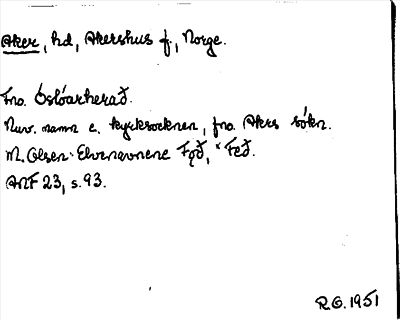 Aker, hd, Akershus f., Norge.
Fno. Óslóarherað.
Nuv. namn e. kyrksocknen, fno. Akrs sókn.
M. Olsen: Elvenavnene Fǫð, *Feð.
ANF 23, s. 93.
R.G. 1951